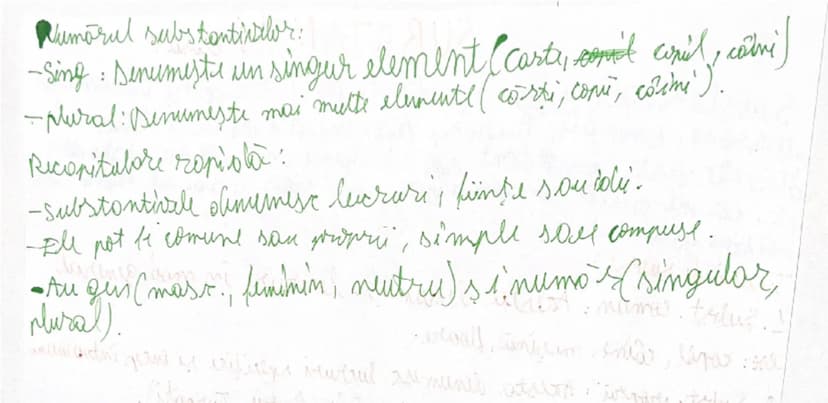 Numărul substantivelor:
-Sing: Denumește un singur element (carte, copil, câine)
-plural: Denumește mai multe elemente (cărți, copii, câini).
Recapitulare rapidă:
-Substantivele denumesc lucruri, ființe sau idei.
-Ele pot fi comune sau proprii, simple sau compuse.
-Au gen (masc., feminin, neutru) și număr (singular,
plural).